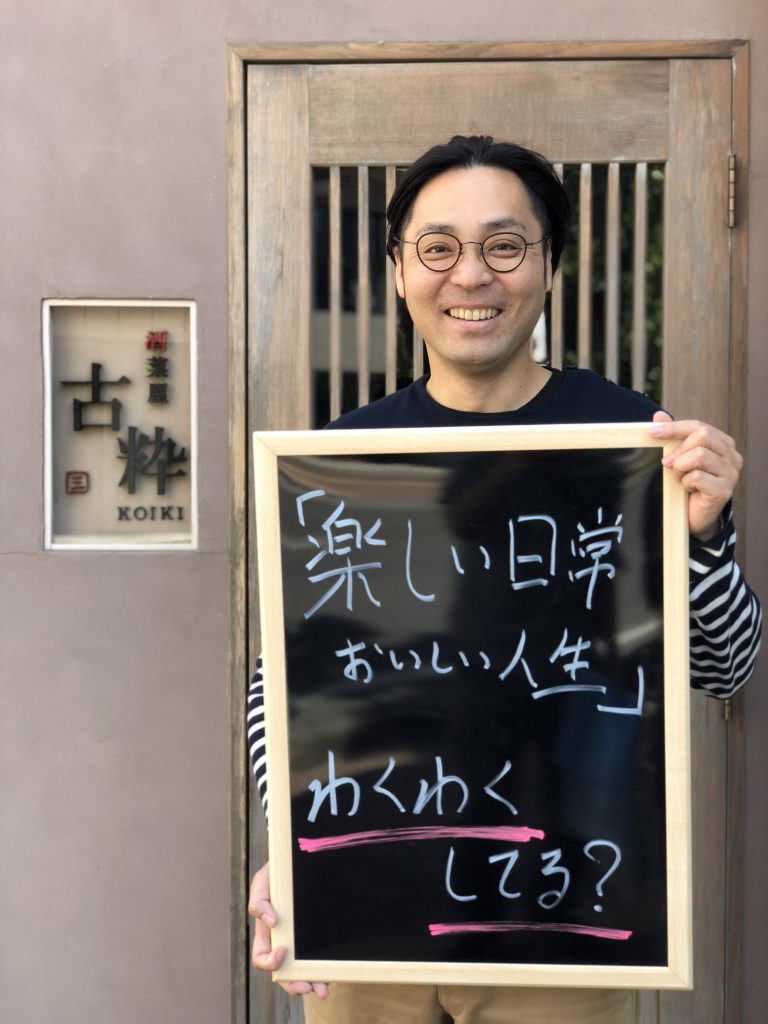 酒菜屋
古粋
三
KOIKI
「楽しい日常
おいしい人生」
わくわく
してる?